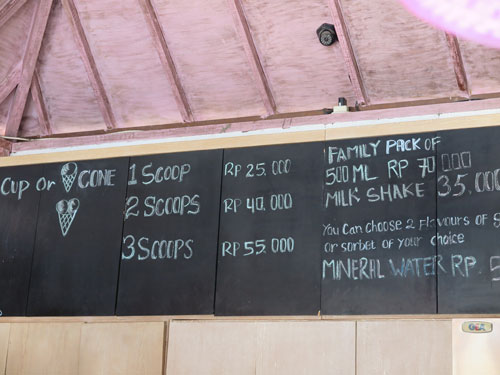 Cup Or CONE
1 SCOOP RP 25.000
2 SCOOPS RP 40.000
3 SCOOPS RP 55.000
FAMILY PACK OF
500 ML RP 70 000
MILK SHAKE 35,000
You Can Choose 2 Flavours of
or sorbet of your choice
MINERAL WATER RP.